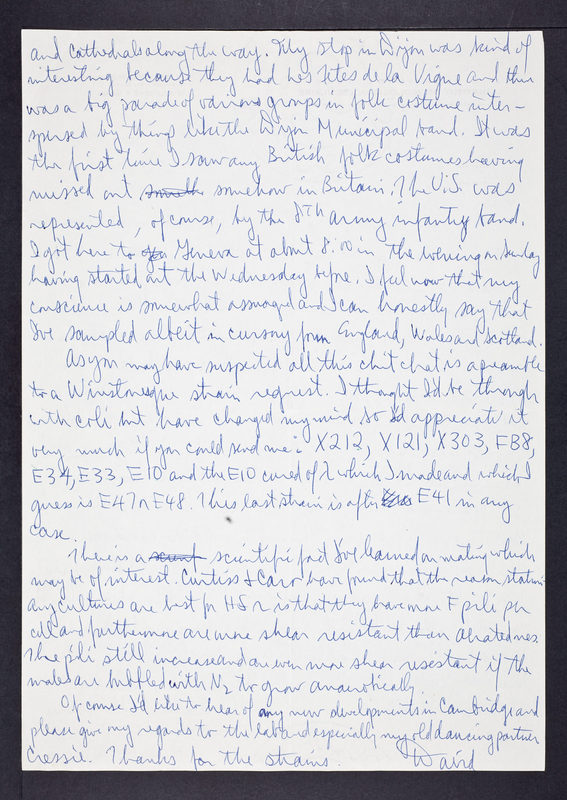 and Cathedrals along the way. My stop in Dijon was kind of
interesting because they had Les Fêtes de la Vigne and there
was a big parade of various groups in folk costume inter-
spersed by things like the Dijon Municipal band. It was
the first time I saw any British folk costumes having
missed out somehow in Britain. The U.S. was
represented, of course, by the 8th army infantry band.
I got here to Geneva at about 8:00 in the evening on Sunday
having started out the Wednesday before. I feel now that my
conscience is somewhat assuaged and I can honestly say that
I've sampled albeit in cursory form England, Wales and Scotland.
As you may have suspected all this chit chat is a preamble
to a Winstonesque strain request. I thought I'd be through
with coli but have changed my mind so I'd appreciate it
very much if you could send me: X212, X121, X303, FB8,
E34, E33, E10 and the E10 cured of λ which I made and which I
guess is E47 or E48. This last strain is after E41 in any
case.
There is a scientific fact I've learned on mating which
may be of interest. Curtiss & Caro have found that the reason station-
ary cultures are best for Hfr is that they have more F pili per
cell and furthermore are more shear resistant than aerated ones.
The pili still increase and are even more shear resistant if the
males are bubbled with N2 to grow anaerobically.
Of course I'd like to hear of any new developments in Cambridge and
please give my regards to the lab and especially my old dancing partner
Cressie. Thanks for the strains. David